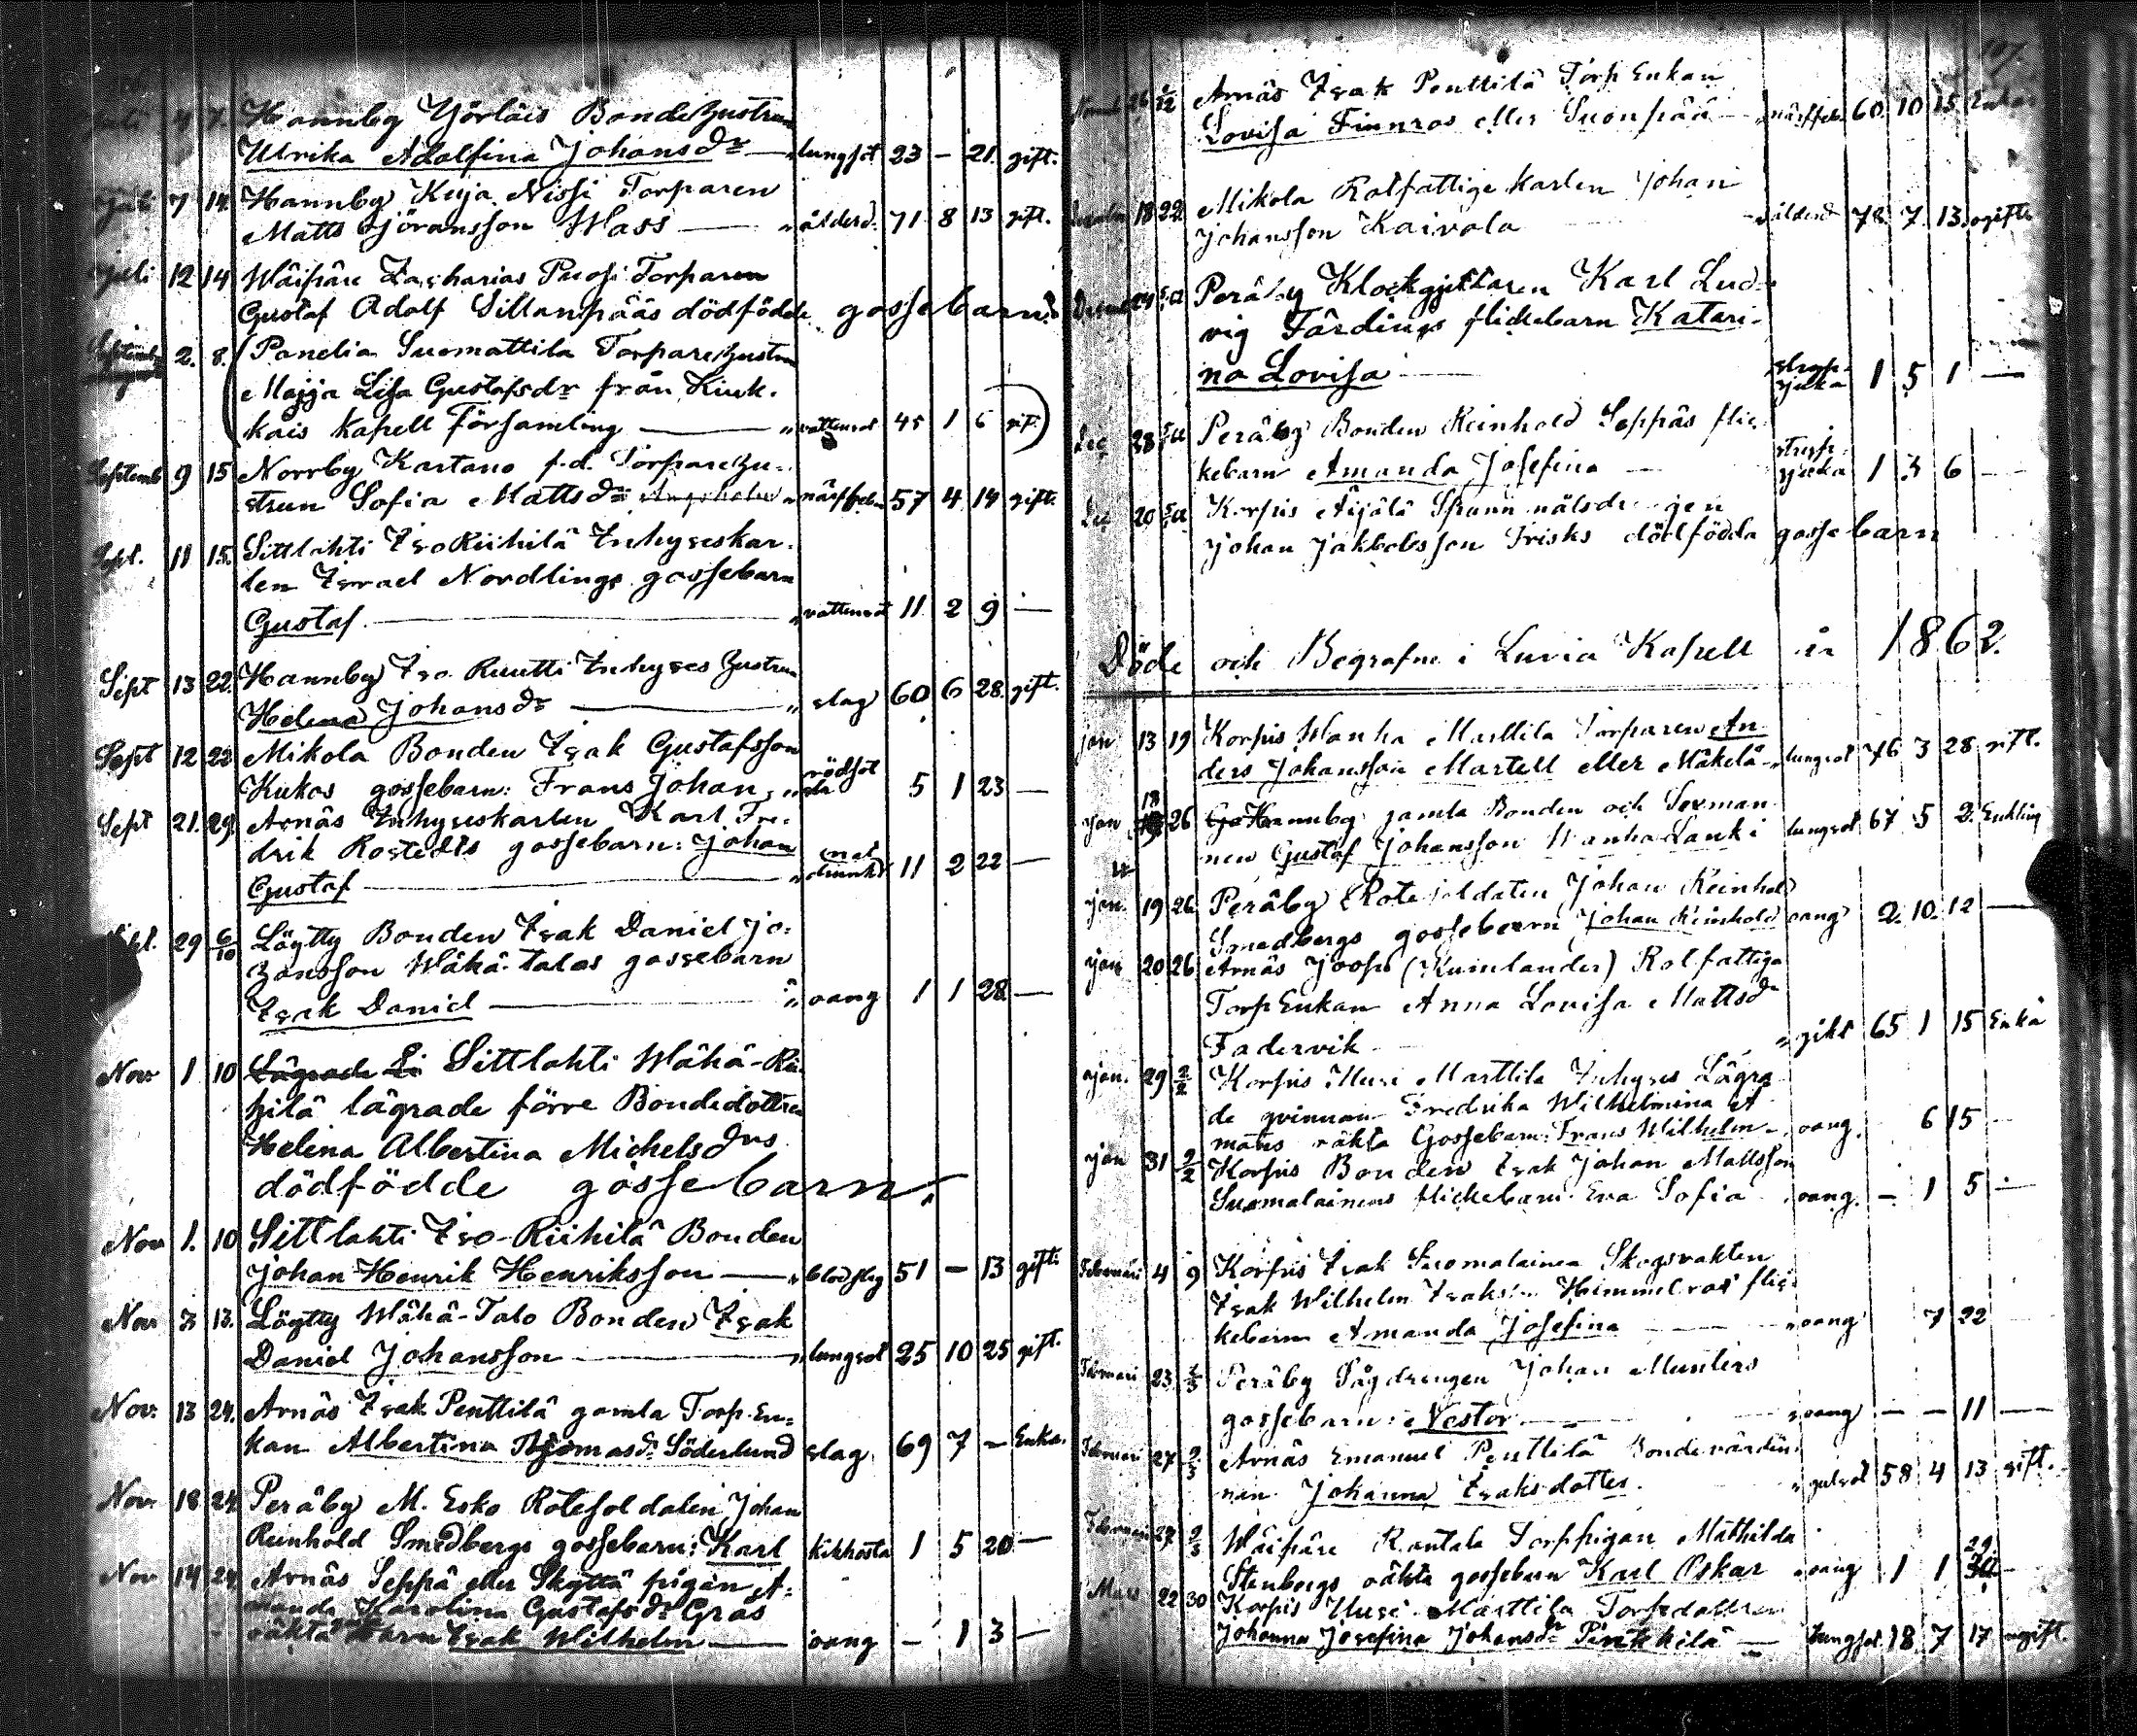 4 7. Hannby Yörläis Bonde Hustrun
Ulrika Adolfina Johansdr — lungsot 23 – 21 gift.
Juli 7 14. Hannby Kuja Nissi Torparen
Matts Jöransson Wass — ålderd. 71 8 13 gift.
Juli 12 14 Wäipäre Zacharias Torparen
Gustaf Adolf Sillanpääs dödfödde gossebarn.
Septemb 2. 8. (Panelia Suomattila Torpare Hustrun
Majja Lisa Gustafsdr från Kiuk-
kais Kapell Församling — vattensot 45 1 6 gift.)
Septemb 9 15 Norrby Kartano f.d. Torpare Hu-
strun Sofia Mattsdr närffeber 57 4 14 gift.
Sept. 11 15. Sittlahti Iso Riihilä Inhyseskar-
len Israel Nordlings gossebarn
Gustaf — vattensot 11 2 9 —
Sept 13 22. Hannby Iso Ruutti Inhyses Hustrun
Helena Johansdr — slag 60 6 28. gift.
Sept 12 22 Mikola Bonden Isak Gustafsson
Kukos gossebarn: Frans Johan, rödsot 5 1 23 —
Sept 21. 29. Arnäs Inhyseskarlen Karl Fre-
drik Rostedts gossebarn: Johan
Gustaf — 11 2 22 —
Sept. 29 6/10 Löytty Bonden Isak Daniel Jo-
hansson Wähä-talos gossebarn
Isak Daniel — oang 1 1 28 —
Nov 1 10 Lägrade Si Sittlahti Wähä-Rii-
hilä lägrade förre Bondedottren
Helena Albertina Michelsdrs
dödfödde gossebarn.
Nov 1. 10 Sittlahti Iso-Riihilä Bonden
Johan Henrik Henriksson — 51 – 13 gift.
Nov 3 13. Löytty Wähä-Talo Bonden Isak
Daniel Johansson — lungsot 25 10 25 gift.
Nov. 13 24. Arnäs Isak Penttilä gamla Torp En-
kan Albertina Thomasdr Söderlund slag 69 7 – Enka.
Nov. 18 24. Peräby M. Esko Rotesoldaten Johan
Reinhold Smedbergs gossebarn: Karl kikhosta 1 5 20 —
Nov 14 24 Arnäs Seppä eller Skyttä pigan A-
manda Karolina Gustafsdr Gräs
oäkta barn Isak Wilhelm — oang – 1 3 —
107.
26 1/12 Arnäs Isak Penttilä Torp Enkan
Lovisa Finnros eller Suonpää — närffeb. 60 10 15 Enka
18 22 Mikola Rotfattige karlen Johan
Johansson Kaivola — ålderd 78 7. 13. ogift
24 Peräby Klockgjutaren Karl Lud-
vig Färdings flickebarn Katari-
na Lovisa — strypsjuka 1 5 1 —
Dec 28 Peräby Bonden Reinhold Seppäs flic-
kebarn Amanda Josefina — strypsjuka 1 3 6 —
Dec 20 Korpis Äijälä Spannmålsdrengen
Johan Jakobsson Frisks dödfödda gossebarn
Döde och Begrafne i Luvia Kapell år 1862.
Jan 13 19 Korpis Wanha Marttila Torparen An-
ders Johansson Martell eller Mäkelä — lungsot 76 3 28 gift.
Jan 18 26 Hannby gamla Bonden och Sexman-
nen Gustaf Johansson Wanha Lanki lungsot 67 5 2. Enkling
Jan. 19 26. Peräby Rotesoldaten Johan Reinhold
Smedbergs gossebarn Johan Reinhold oang 2. 10. 12 —
Jan 20 26 Arnäs Jooss (Kumlander) Rotfattiga
Torp Enkan Anna Lovisa Mattsdr
Fadervik — gikt 65 1 15 Enka
Jan. 29 2/2 Korpis Uusi Marttila Inhyses Lägra-
de qvinnan Fredrika Wilhelmina A
mans oäkta Gossebarn: Frans Wilhelm — oang. 6 15
Jan 31 2/2 Korpis Bonden Isak Johan Mattsson
Suomalainens flickebarn Eva Sofia oang. – 1 5 —
Februari 4 9 Korpis Isak Suomalainen Skogsvakten
Isak Wilhelm Isaksson Himmelros flic-
kebarn Amanda Josefina — oang 7 22
Februari 23 2/3 Peräby Sågdrengen Johan Munters
gossebarn: Nestor — oang – – 11 —
Februari 27 2/3 Arnäs Emanuel Penttilä Bondevärdin-
nan Johanna Isaksdotter. gulsot 58 4 13 gift.
Februari 27 2/3 Wäipäre Rantala Torppigan Mathilda
Stenbergs oäkta gossebarn Karl Oskar oang 1 1 29
Mars 22 30 Korpis Uusi Marttila Torpdottren
Johanna Josefina Johansdr Pinkkilä — lungsot 18 7 17 ogift.